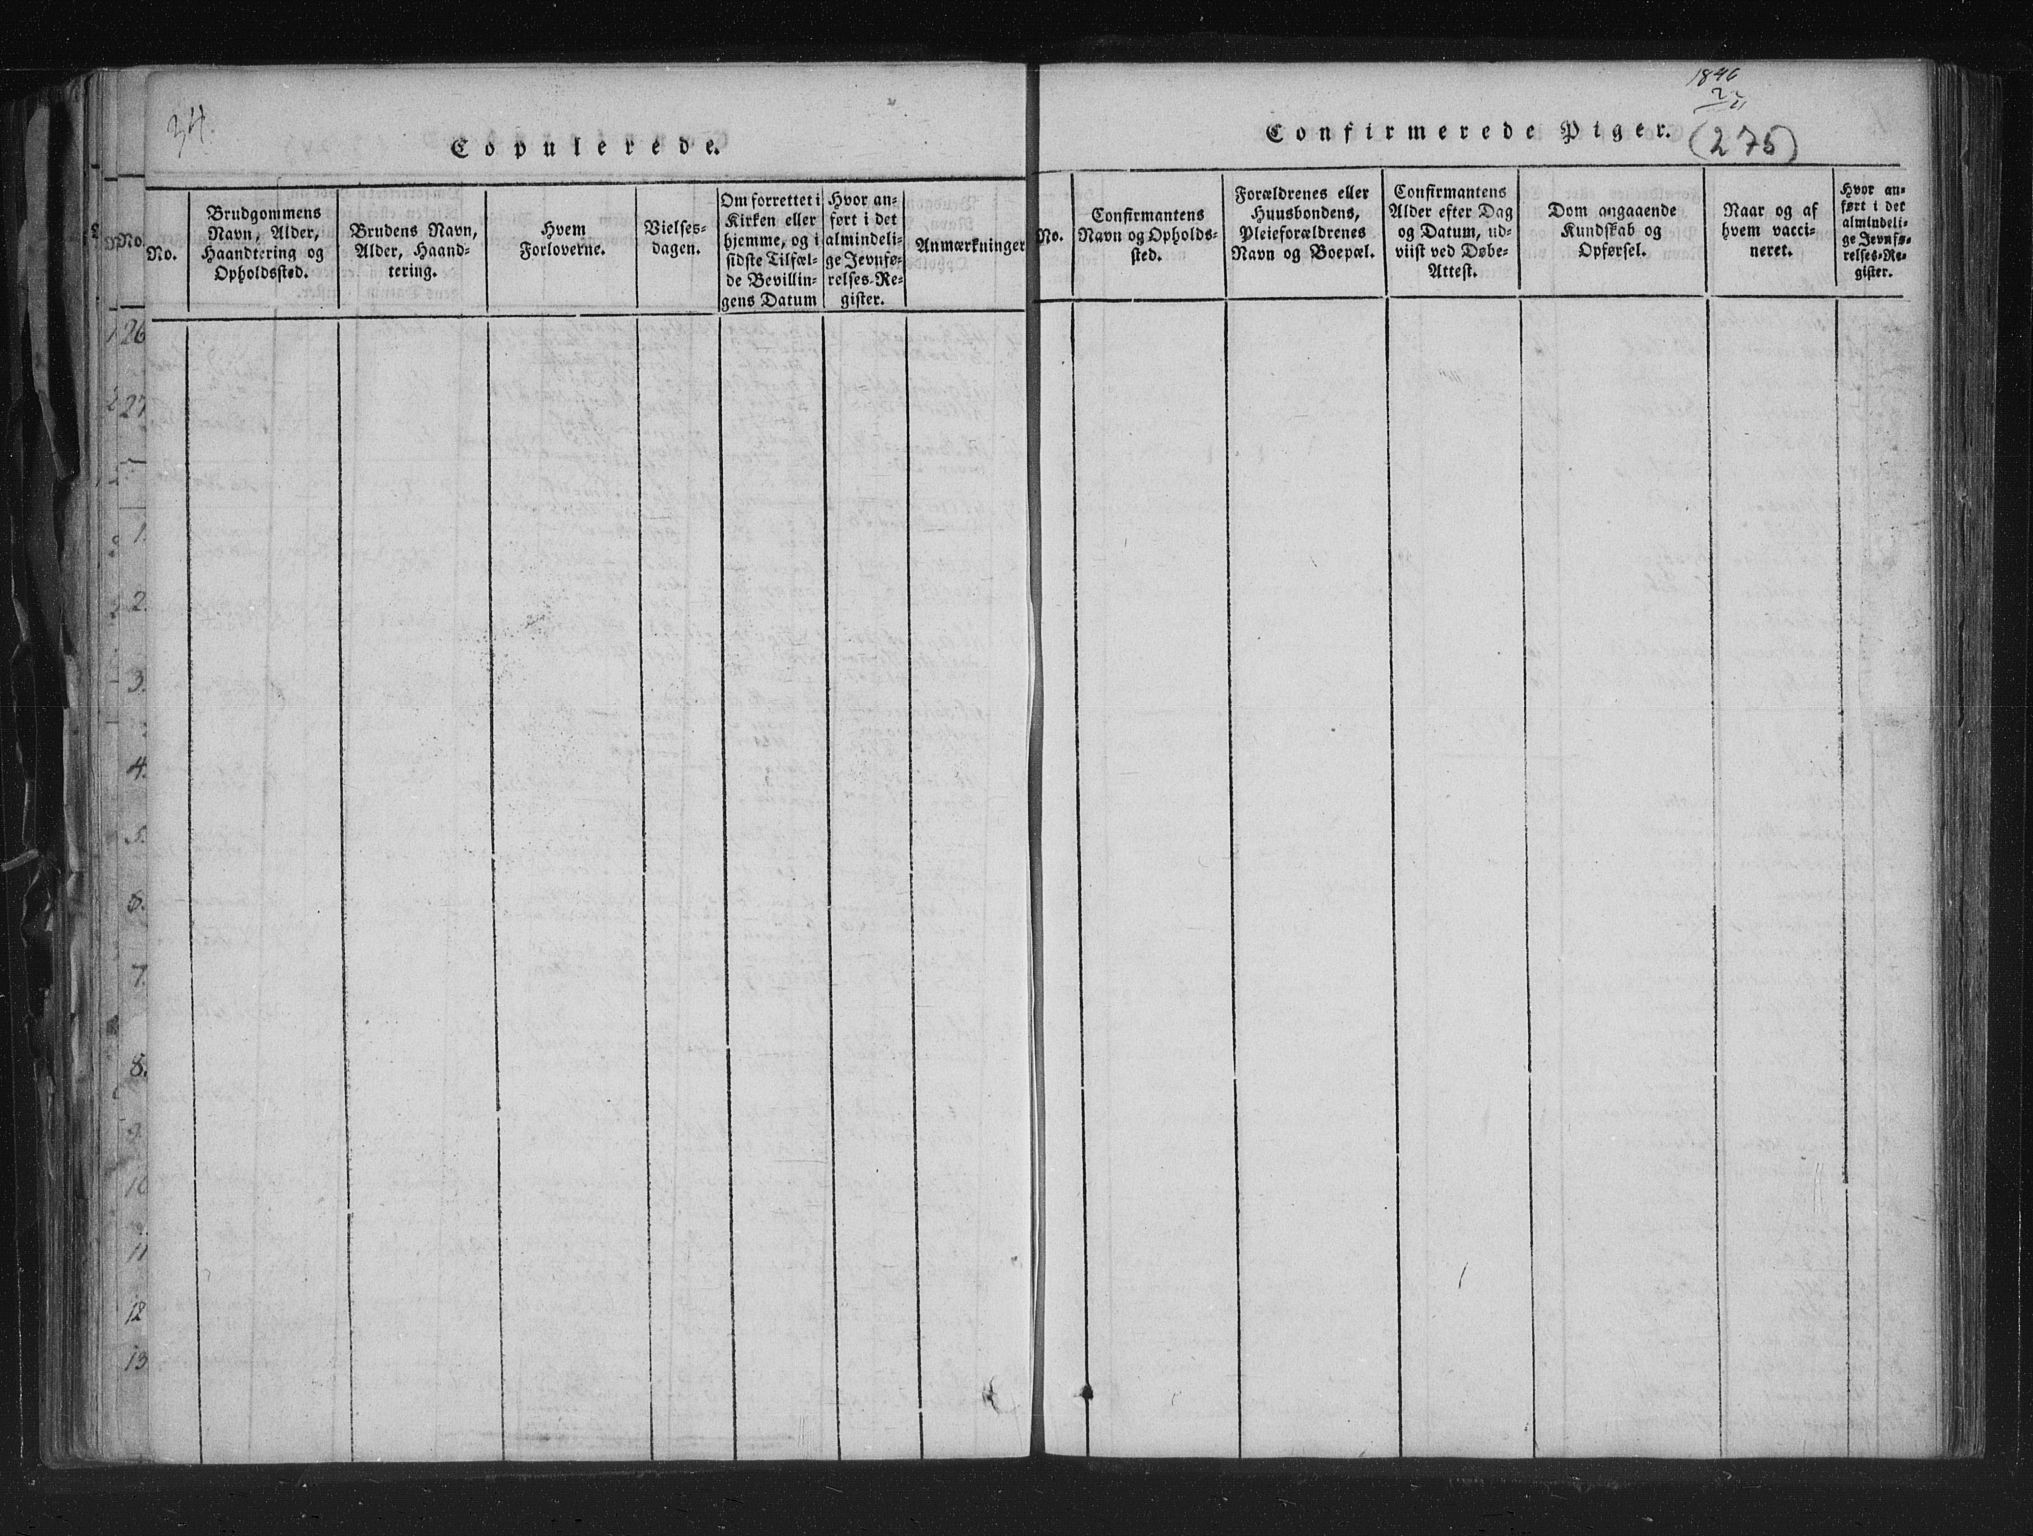 34.
Copulerede.
No.
No.
Brudgommens
Navn, Alder,
Haandtering og
Opholdssted.
Brudens Navn,
Alder, Haand-
tering.
Hvem
Forloverne.
Vielses-
dagen.
Om forrettet i
Kirken eller
hjemme, og i
sidste Tilfæl-
de Bevillin-
gens Datum
Hvor an-
ført i det
almindeli-
ge Jevnfø-
relses-Re-
gister.
Anmærkninger
26
27
1.
2.
3.
4.
5.
6.
7.
8.
9.
10
11
12
13
1846
(275)
Confirmerede Piger.
No.
Confirmantens
Navn og Opholds-
sted.
Forældrenes eller
Huusbondens,
Pleieforældrenes
Navn og Boepæl.
Confirmantens
Alder efter Dag
og Datum, ud-
viist ved Døbe-
Attest.
Dom angaaende
Kundskab og
Opførsel.
Naar og af
hvem vacci-
neret.
Hvor an-
ført i det
almindeli-
ge Jevnfø-
relses-Re-
gister.